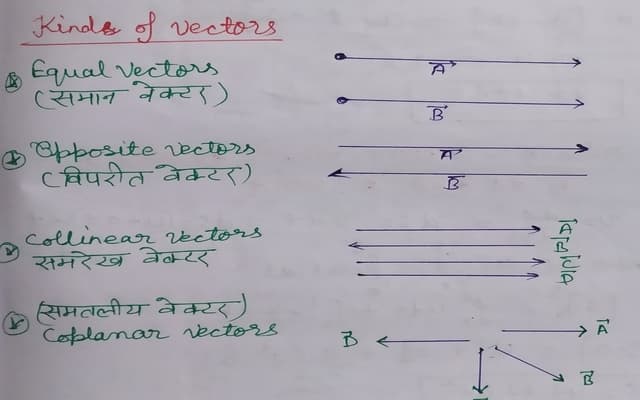 Kinds of vectors
Equal vectors
(समान वेक्टर)
A
B
Opposite vectors
(विपरीत वेक्टर)
A
B
Collinear vectors
समरेख वेक्टर
A
B
C
D
(समतलीय वेक्टर)
Coplanar vectors
A
D
B